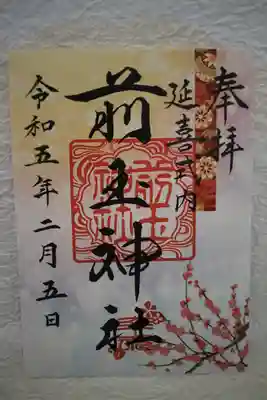 奉拝
延喜式内
前玉神社
令和五年二月五日